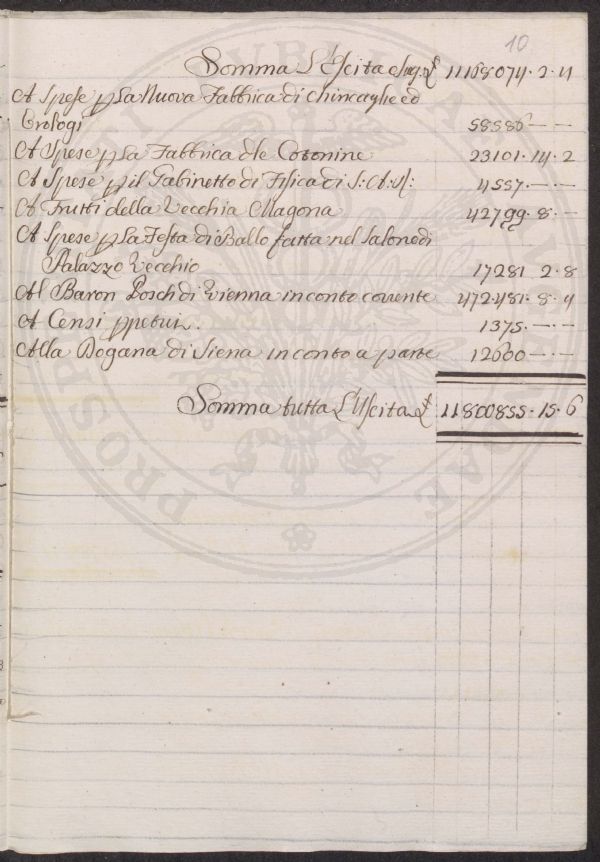 10
Somma L'Uscita e seg. £ 11168074.2.4
A Spese p La Nuova Fabbrica di Chincaglie ed
Orologi 58586.—.—
A Spese p La Fabbrica dle Cotonine 23101.14.2
A Spese p il Gabinetto di Fisica di S: A: R: 4557.—.—
A Frutti della Vecchia Magona 42799.8.—
A Spese p La Festa di Ballo fatta nel Salone di
Palazzo Vecchio 17281 2.8
Al Baron Bosch di Vienna in conto corrente 472481.8.4
A Censi ppetui. 1375.—.—
Alla Dogana di Siena in conto a parte 12600.—.—
Somma tutta L'Uscita £ 11800855.15.6